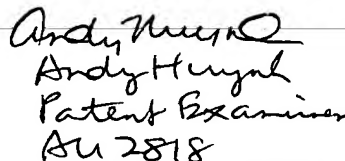 Andy Huynh
Andy Huynh
Patent Examiner
AU 2818